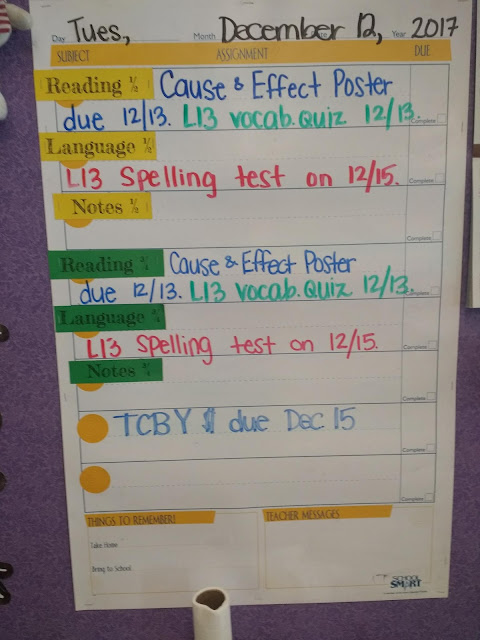 Day Tues, Month December 12, Year 2017
SUBJECT ASSIGNMENT DUE
Reading 1/2 Cause & Effect Poster
due 12/13. L13 vocab. Quiz 12/13. Complete
Language 1/2
L13 Spelling test on 12/15. Complete
Notes 1/2
Complete
Reading Cause & Effect Poster
due 12/13. L13 vocab. Quiz 12/13. Complete
Language
L13 Spelling test on 12/15. Complete
Notes
Complete
TCBY $ due Dec 15
Complete
Complete
THINGS TO REMEMBER! TEACHER MESSAGES
Take Home
Bring to School
SCHOOL
SMART